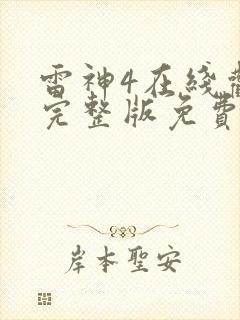 雷神4在线
完整版免費
岸本聖安